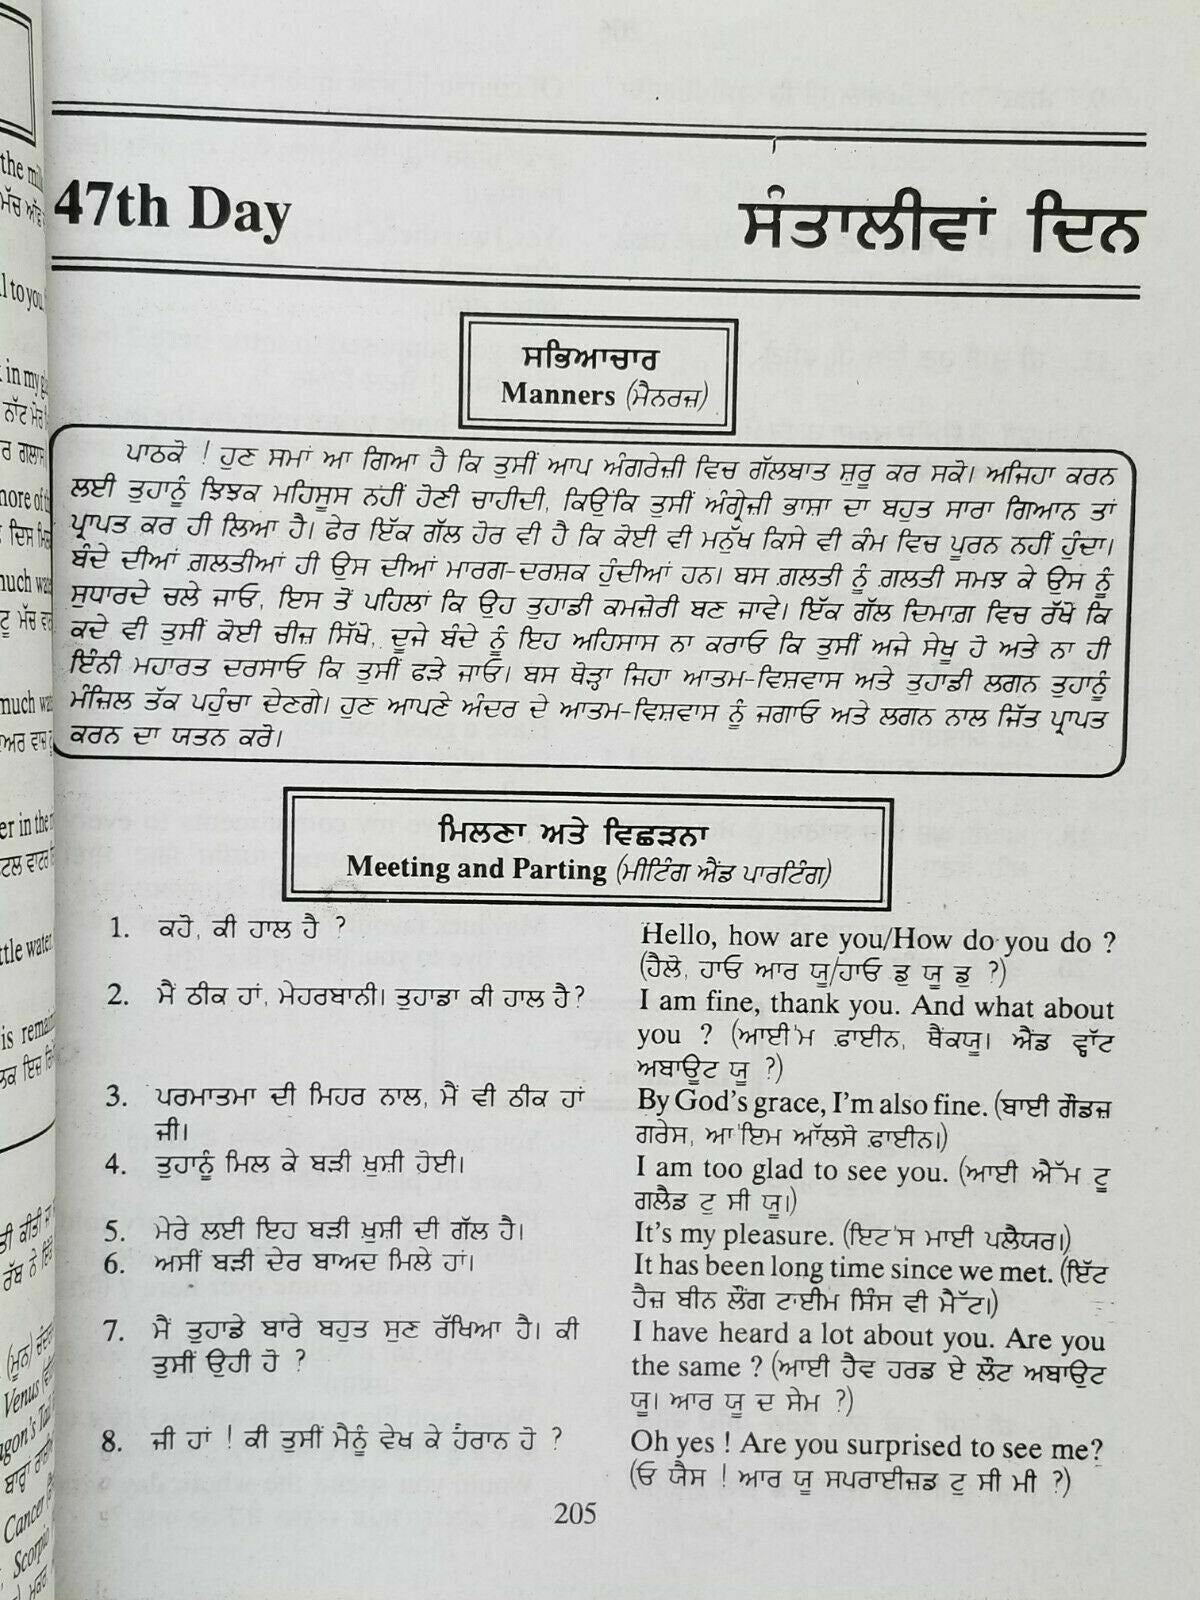 47th Day ਸੰਤਾਲੀਵਾਂ ਦਿਨ
ਸਭਿਆਚਾਰ
Manners (ਮੈਨਰਜ਼)
ਪਾਠਕੋ ! ਹੁਣ ਸਮਾਂ ਆ ਗਿਆ ਹੈ ਕਿ ਤੁਸੀਂ ਆਪ ਅੰਗਰੇਜ਼ੀ ਵਿਚ ਗੱਲਬਾਤ ਸ਼ੁਰੂ ਕਰ ਸਕੋ। ਅਜਿਹਾ ਕਰਨ
ਲਈ ਤੁਹਾਨੂੰ ਝਿਝਕ ਮਹਿਸੂਸ ਨਹੀਂ ਹੋਣੀ ਚਾਹੀਦੀ, ਕਿਉਂਕਿ ਤੁਸੀਂ ਅੰਗ੍ਰੇਜ਼ੀ ਭਾਸ਼ਾ ਦਾ ਬਹੁਤ ਸਾਰਾ ਗਿਆਨ ਤਾਂ
ਪ੍ਰਾਪਤ ਕਰ ਹੀ ਲਿਆ ਹੈ। ਫੇਰ ਇੱਕ ਗੱਲ ਹੋਰ ਵੀ ਹੈ ਕਿ ਕੋਈ ਵੀ ਮਨੁੱਖ ਕਿਸੇ ਵੀ ਕੰਮ ਵਿਚ ਪੂਰਨ ਨਹੀਂ ਹੁੰਦਾ।
ਬੰਦੇ ਦੀਆਂ ਗ਼ਲਤੀਆਂ ਹੀ ਉਸ ਦੀਆਂ ਮਾਰਗ-ਦਰਸ਼ਕ ਹੁੰਦੀਆਂ ਹਨ। ਬਸ ਗ਼ਲਤੀ ਨੂੰ ਗ਼ਲਤੀ ਸਮਝ ਕੇ ਉਸ ਨੂੰ
ਸੁਧਾਰਦੇ ਚਲੇ ਜਾਓ, ਇਸ ਤੋਂ ਪਹਿਲਾਂ ਕਿ ਉਹ ਤੁਹਾਡੀ ਕਮਜ਼ੋਰੀ ਬਣ ਜਾਵੇ। ਇੱਕ ਗੱਲ ਦਿਮਾਗ਼ ਵਿਚ ਰੱਖੋ ਕਿ
ਕਦੇ ਵੀ ਤੁਸੀਂ ਕੋਈ ਚੀਜ਼ ਸਿੱਖੋ, ਦੂਜੇ ਬੰਦੇ ਨੂੰ ਇਹ ਅਹਿਸਾਸ ਨਾ ਕਰਾਓ ਕਿ ਤੁਸੀਂ ਅਜੇ ਸੇਖੂ ਹੋ ਅਤੇ ਨਾ ਹੀ
ਇੰਨੀ ਮਹਾਰਤ ਦਰਸਾਓ ਕਿ ਤੁਸੀਂ ਫੜੇ ਜਾਓ। ਬਸ ਥੋੜ੍ਹਾ ਜਿਹਾ ਆਤਮ-ਵਿਸ਼ਵਾਸ ਅਤੇ ਤੁਹਾਡੀ ਲਗਨ ਤੁਹਾਨੂੰ
ਮੰਜ਼ਿਲ ਤੱਕ ਪਹੁੰਚਾ ਦੇਣਗੇ। ਹੁਣ ਆਪਣੇ ਅੰਦਰ ਦੇ ਆਤਮ-ਵਿਸ਼ਵਾਸ ਨੂੰ ਜਗਾਓ ਅਤੇ ਲਗਨ ਨਾਲ ਜਿੱਤ ਪ੍ਰਾਪਤ
ਕਰਨ ਦਾ ਯਤਨ ਕਰੋ।
ਮਿਲਣਾ ਅਤੇ ਵਿਛੜਨਾ
Meeting and Parting (ਮੀਟਿੰਗ ਐਂਡ ਪਾਰਟਿੰਗ)
1. ਕਹੋ, ਕੀ ਹਾਲ ਹੈ ?
Hello, how are you/How do you do ?
(ਹੈਲੋ, ਹਾਓ ਆਰ ਯੂ/ਹਾਓ ਡੁ ਯੂ ਡੁ ?)
2. ਮੈਂ ਠੀਕ ਹਾਂ, ਮੇਹਰਬਾਨੀ। ਤੁਹਾਡਾ ਕੀ ਹਾਲ ਹੈ?
I am fine, thank you. And what about
you ? (ਆਈ'ਮ ਫ਼ਾਈਨ, ਥੈਂਕਯੂ। ਐਂਡ ਵ੍ਹਾੱਟ
ਅਬਾਊਟ ਯੂ ?)
3. ਪਰਮਾਤਮਾ ਦੀ ਮਿਹਰ ਨਾਲ, ਮੈਂ ਵੀ ਠੀਕ ਹਾਂ
ਜੀ।
By God's grace, I'm also fine. (ਬਾਈ ਗੌਡਜ਼
ਗਰੇਸ, ਆ'ਇਮ ਆੱਲਸੋ ਫ਼ਾਈਨ।)
4. ਤੁਹਾਨੂੰ ਮਿਲ ਕੇ ਬੜੀ ਖ਼ੁਸ਼ੀ ਹੋਈ।
I am too glad to see you. (ਆਈ ਐੱਮ ਟੂ
ਗਲੈਡ ਟੁ ਸੀ ਯੂ।)
5. ਮੇਰੇ ਲਈ ਇਹ ਬੜੀ ਖ਼ੁਸ਼ੀ ਦੀ ਗੱਲ ਹੈ।
It's my pleasure. (ਇਟ'ਸ ਮਾਈ ਪਲੈਯਰ।)
6. ਅਸੀਂ ਬੜੀ ਦੇਰ ਬਾਅਦ ਮਿਲੇ ਹਾਂ।
It has been long time since we met. (ਇੱਟ
ਹੈਜ਼ ਬੀਨ ਲੌਂਗ ਟਾਈਮ ਸਿੰਸ ਵੀ ਮੈੱਟ।)
7. ਮੈਂ ਤੁਹਾਡੇ ਬਾਰੇ ਬਹੁਤ ਸੁਣ ਰੱਖਿਆ ਹੈ। ਕੀ
ਤੁਸੀਂ ਉਹੀ ਹੋ ?
I have heard a lot about you. Are you
the same ? (ਆਈ ਹੈਵ ਹਰਡ ਏ ਲੌਟ ਅਬਾਉਟ
ਯੂ। ਆਰ ਯੂ ਦ ਸੇਮ ?)
8. ਜੀ ਹਾਂ ! ਕੀ ਤੁਸੀਂ ਮੈਨੂੰ ਵੇਖ ਕੇ ਹੈਰਾਨ ਹੋ ?
Oh yes ! Are you surprised to see me?
(ਓ ਯੈਸ ! ਆਰ ਯੂ ਸਪਰਾਈਜ਼ਡ ਟੁ ਸੀ ਮੀ ?)
205